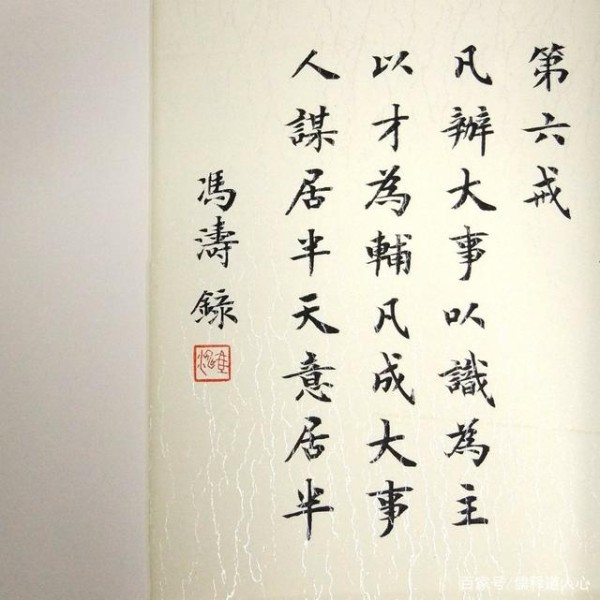 第六戒
凡辦大事以識為主
以才為輔凡成大事
人謀居半天意居半
馮濤錄
百家号/儒释道人心